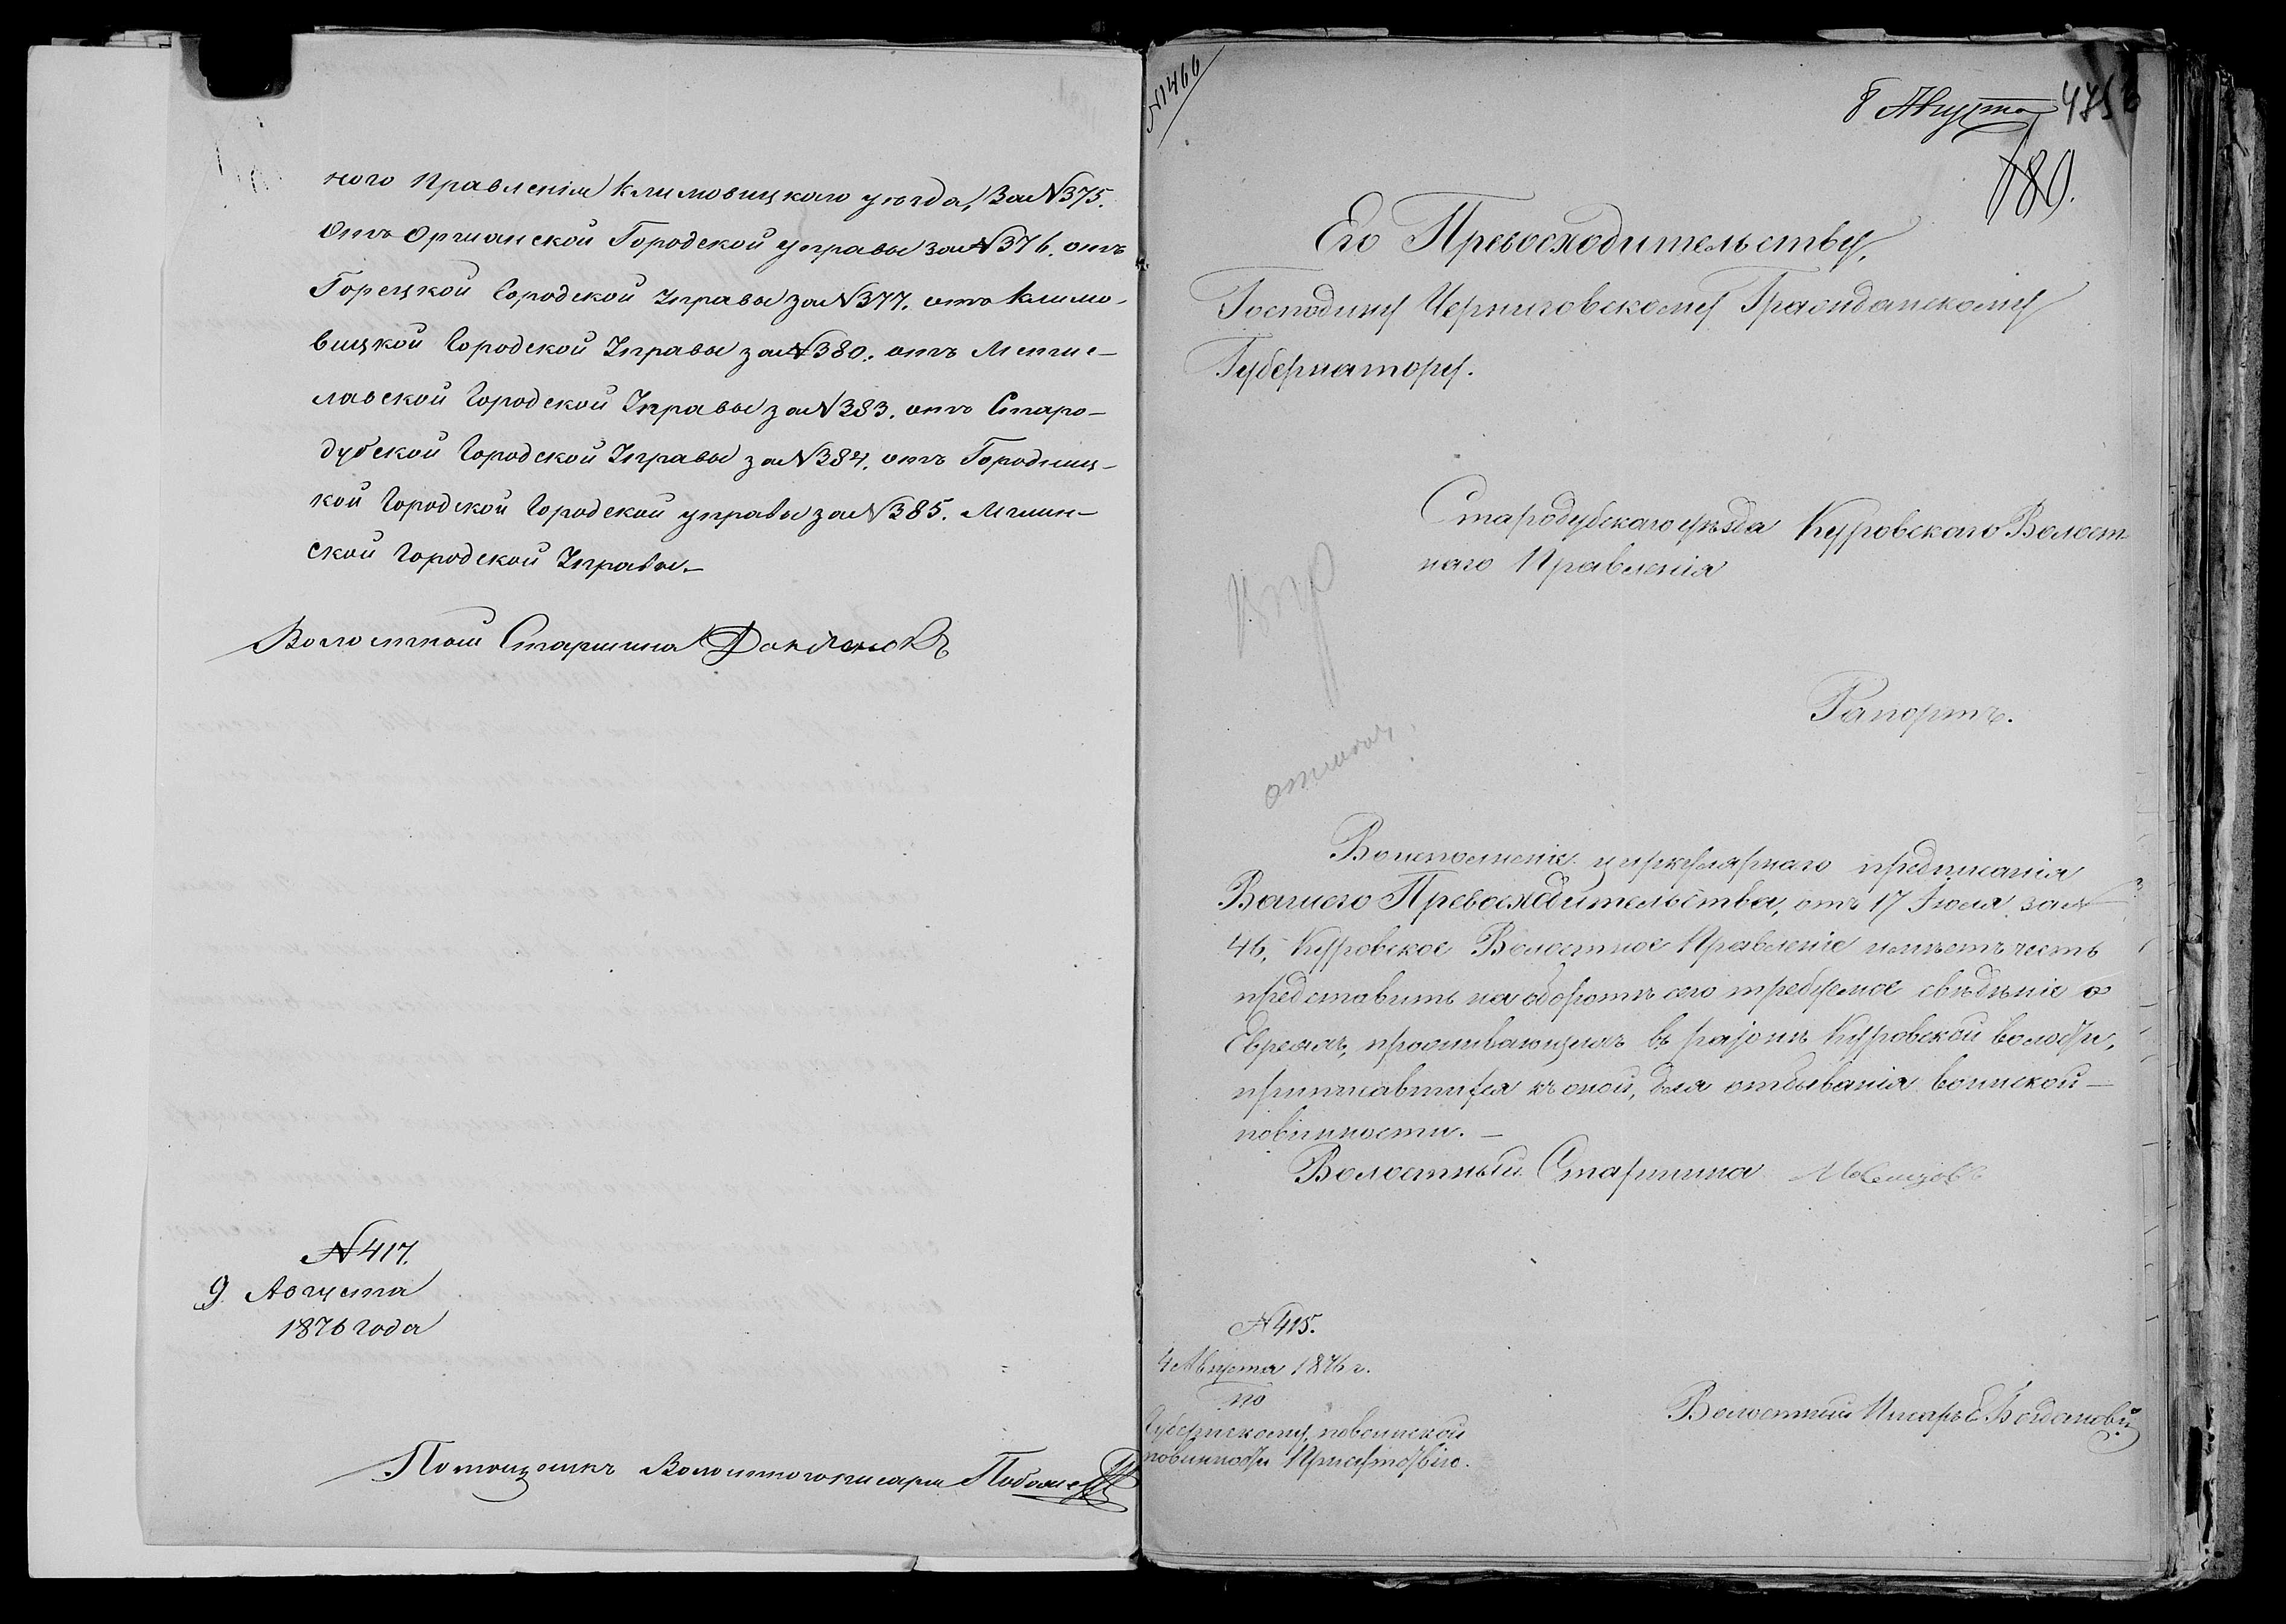 ного Правленія Климовицкаго уезда, За № 375.
Отъ Оршанской Городской управы за № 376. отъ
Горецкой Городской Управы за № 377. отъ Климо-
вицкой Городской Управы за № 380. отъ Мстис-
лавской Городской Управы за № 383. отъ Старо-
дубской Городской Управы за № 384. отъ Городниц-
кой Городской Городской управы за № 385. Мглин-
ской Городской Управы.
Волостной Старшина
№ 417.
9 Августа
1876 года
Помощникъ Волостного писаря
№ 1466
8 Августа
180.
Его Превосходительству,
Господину Черниговскому Гражданскому
Губернатору.
Стародубскаго уѣзда Куровскаго Волост
наго Правленія
Рапортъ.
Воисполненіе циркулярнаго предписанія
Вашего Превосходительства, отъ 17 Іюля за №
46, Куровское Волостное Правленіе имѣетъ честь
представить на оборотѣ сего требуемое свѣдѣніе о
Евреяхъ, проживающихъ въ районѣ Куровской волости,
приписавшихся къ оной, для отбыванія воинской
повинности.
Волостный Старшина
№ 415.
4 Августа 1876 г.
по
Губернскому, повоинской
повинности Присутствію.
Волостный Писарь Е Богданович